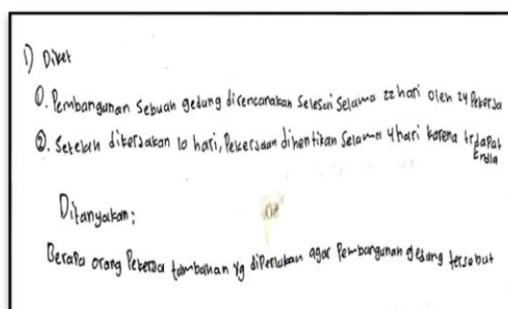 1) Diket
①. Pembangunan Sebuah gedung direncanakan Selesai Selama 22 hari oleh 24 Pekerja
②. Setelah dikerjakan 10 hari, Pekerjaan dihentikan Selama 4 hari karena trdapat
Ditanyakan;
Berapa orang Pekerja tambahan yg diperlukan agar Pembangunan gedung tersebut